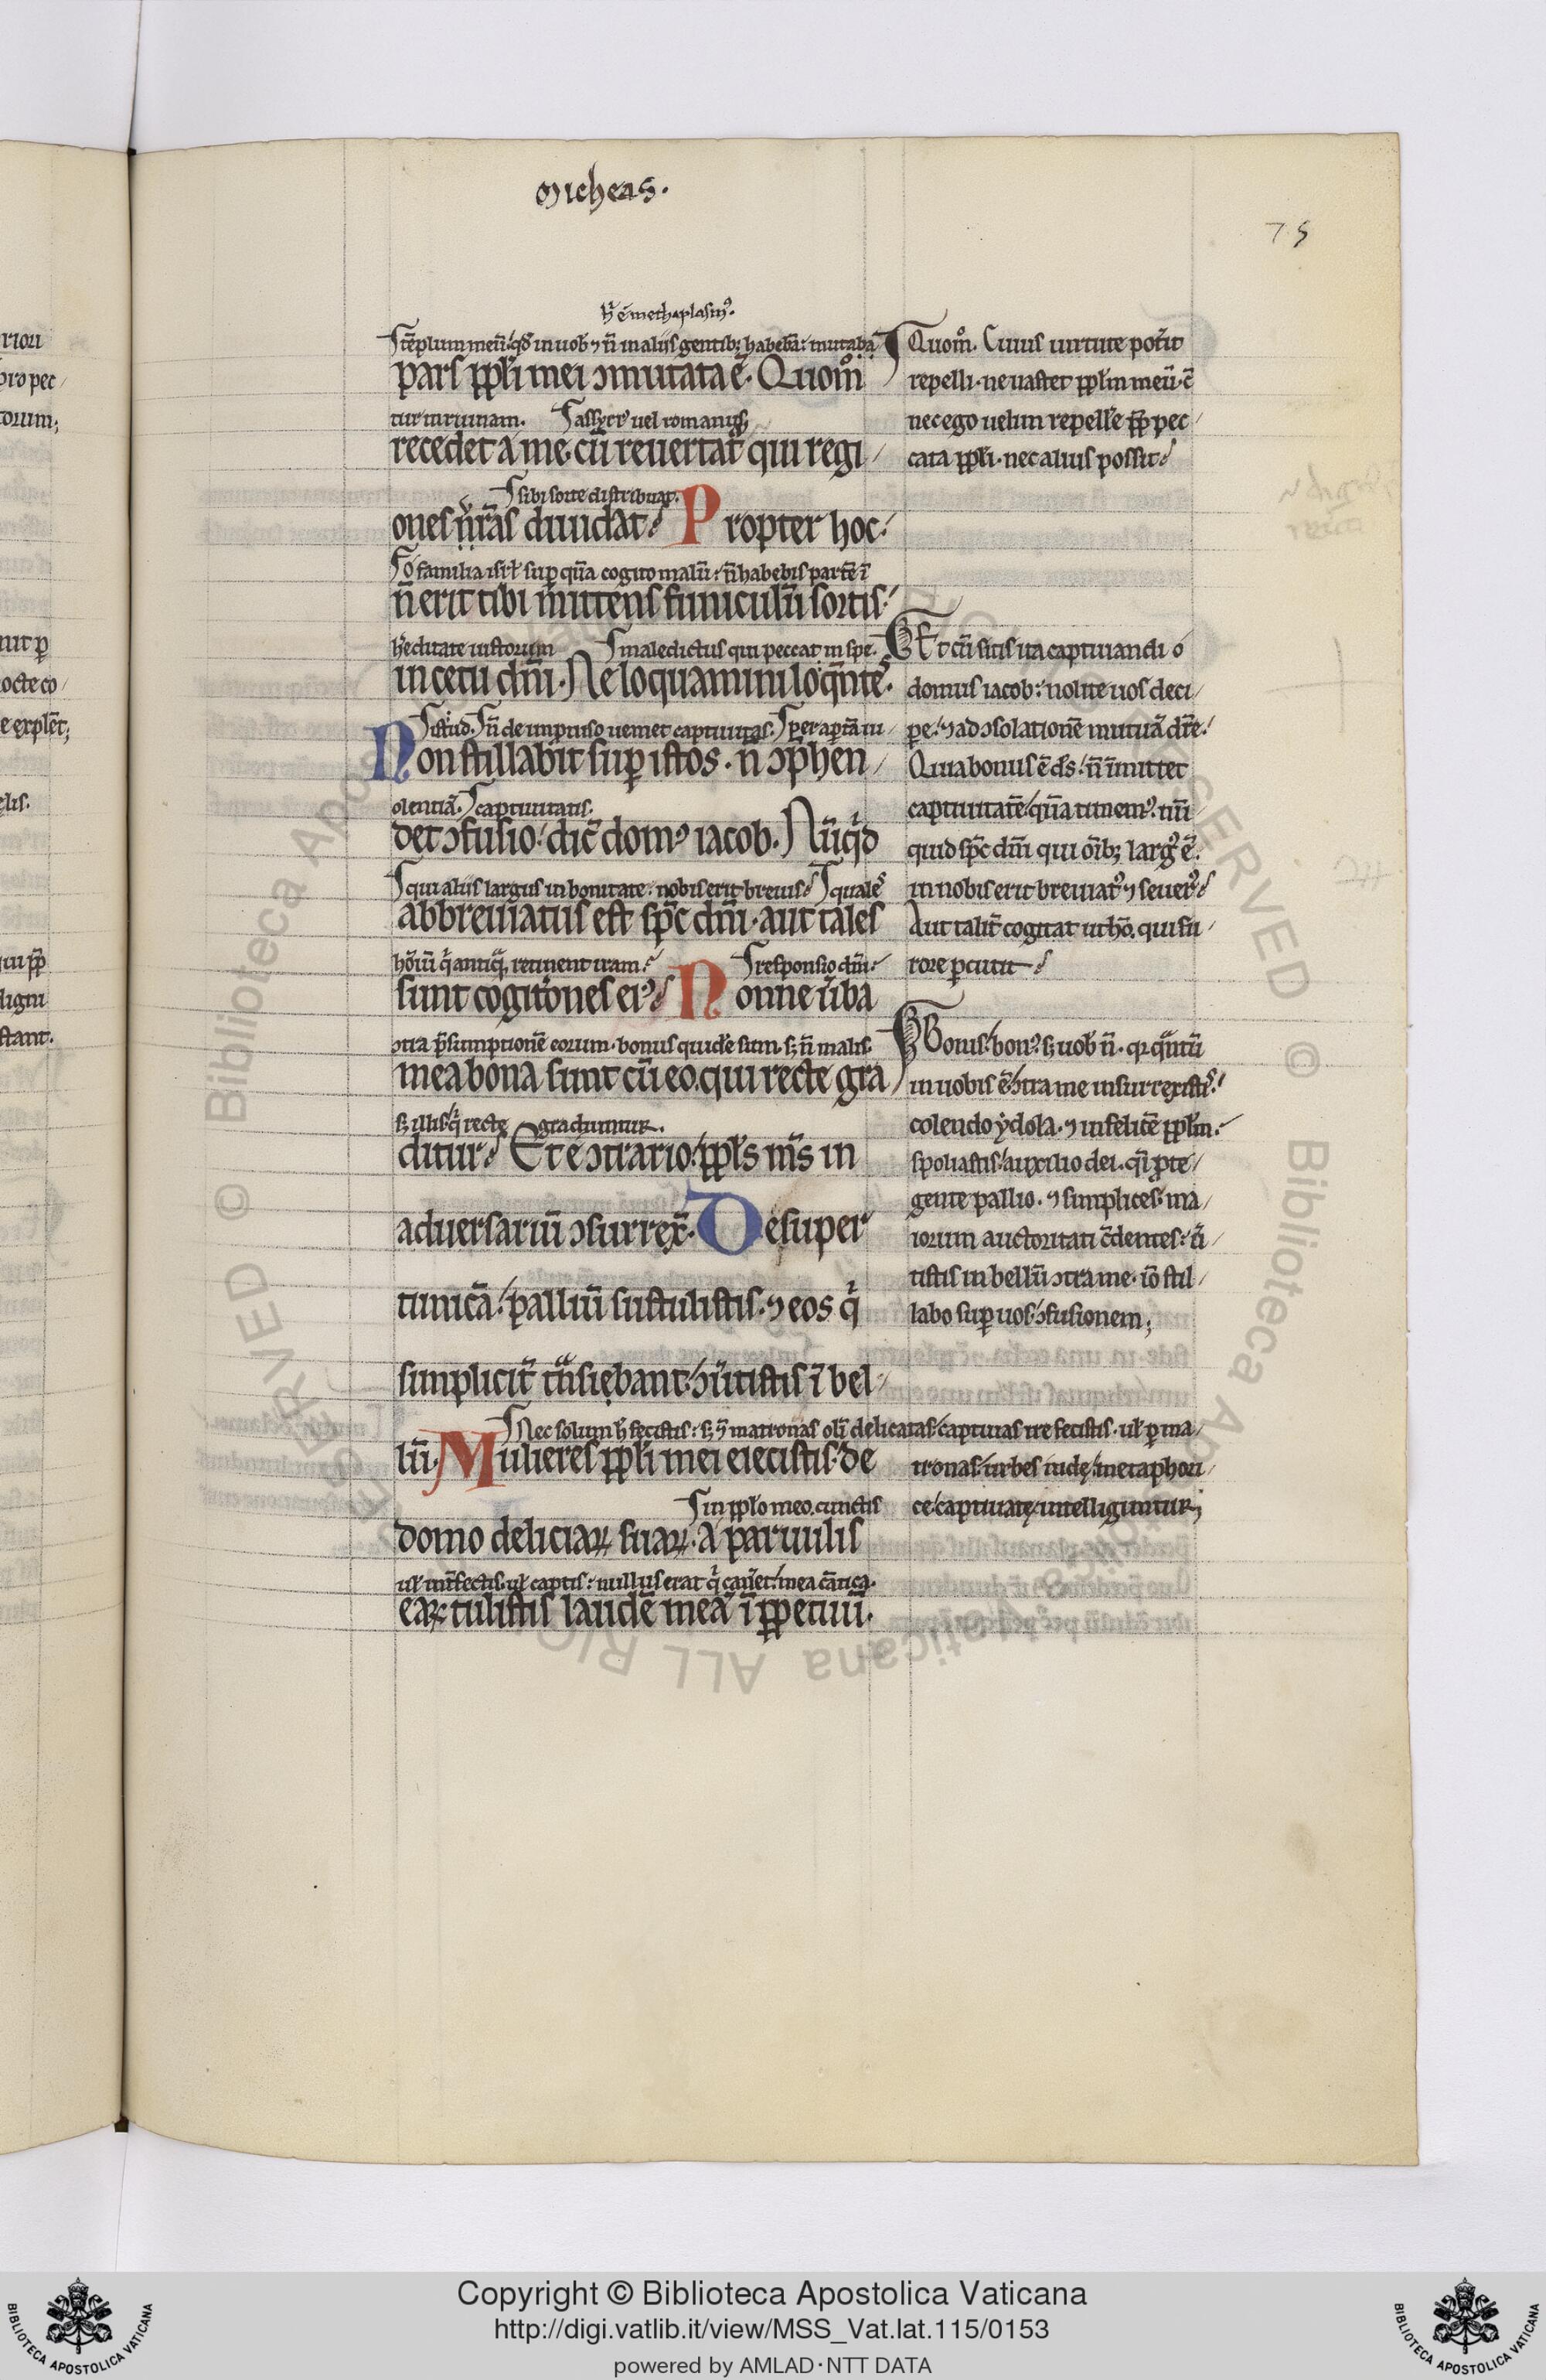 Micheas.
75
h̾ ē methaplasm⁹.
Tēplum meū. qd̄ in uob̾ ⁊ n̄ in aliis gentib; habebā: mutaba
pars ppl̓i mei ɔmutata ē. Quom̊
tur in ruinam. assyr⁹ uel romanus
recedet a me. cū reuertat᷑ qui regi
sibi sorte distribuat.
ones ur̄as diuidat. Propter hoc.
o familia isr̄l sup̱ quā cogito malū: n̄ habebis partē ī
n̄ erit tibi mittens funiculū sortis.
h̓editate iustorum maledictus qui peccat in spe.
in cetu dn̄i. Ne loquamini loq̄ntes.
istud. n̄ de improuiso ueniet captiuitas. per aptā ui
Non stillabit sup̱ istos. n̄ ɔp̱hen
olentiā. captiuitatis.
det ɔfusio. dic̄ dom⁹ iacob. Nūqͥd
qui aliis largus in bonitate. nobis erit breuis quales
abbreuiatus est sp̄c dn̄i. aut tales
hōiū qͥ antiqͣ retinent iram. responsio dn̄i.
sunt cogitōnes ei⁹. Nonne ūba
ɔtra p̄sumptionē eorum. bonus quidē sum. s; n̄ malis.
mea bona sunt cū eo. qui recte gra
s; illis qͥ recte gradiuntur.
ditur. Et e ɔtrario. ppl̓s m̄s in
aduersariū ɔsurrex̄. Desuper
tunicā. palliū sustulistis. ⁊ eos qͥ
simplicit᷑ tͣnsiebant. ɔūtistis ī bel
Nec solum h̓ fecistis: s; ⁊ matronas oli᷑ delicatas. captiuas ire fecistis. ul̓ p̱ ma
lū. Mulieres ppl̓i mei eiecistis. de
in ppl̓o meo. cunctis
domo deliciaꝝ suaꝝ. a paruulis
ul̓ int̓fectis. ul̓ captis: nullus erat qͥ caneret mea cātica.
eaꝝ tulistis laudē meā ī ppetuū.
Quom̊. Cuius uirtute pot̓it
repelli. ne uastet ppl̓m meū. c̄
nec ego uelim repell̓e pp̄ pec
cata ppl̓i. nec alius possit.
Et cū sitis ita captiuandi o
domus iacob: nolite uos deci
pe. ⁊ ad ɔsolationē mutuā dic̄re.
Quia bonus ē ds̄. n̄ īmittet
captiuitatē. quā timem⁹. nū
quid sp̄c dn̄i qui oīb; larg⁹ ē.
in nobis erit breuiat⁹ ⁊ seuer⁹.
Aut talit᷑ cogitat ut hō. qui fu
rore p̱cutit.
Bonis. bon⁹. s; uob̾ n̄. qr̄ qͣntū
in uobis ē. ɔtra me insurrexistis.
colendo ydola. ⁊ infelicē ppl̓m.
spoliastis. auxilio dei. qͣi p̱te
gente pallio. ⁊ simplices. ma
iorum auctoritati c̄dentes: ū
tistis in bellū ɔtra me. iō stil
labo sup̱ uos. ɔfusionem;
tronas. urbes iudę. metaphori
ce. captiuatę. intelliguntur;
Copyright © Biblioteca Apostolica Vaticana
http://digi.vatlib.it/view/MSS_Vat.lat.115/0153
powered by AMLAD·NTT DATA